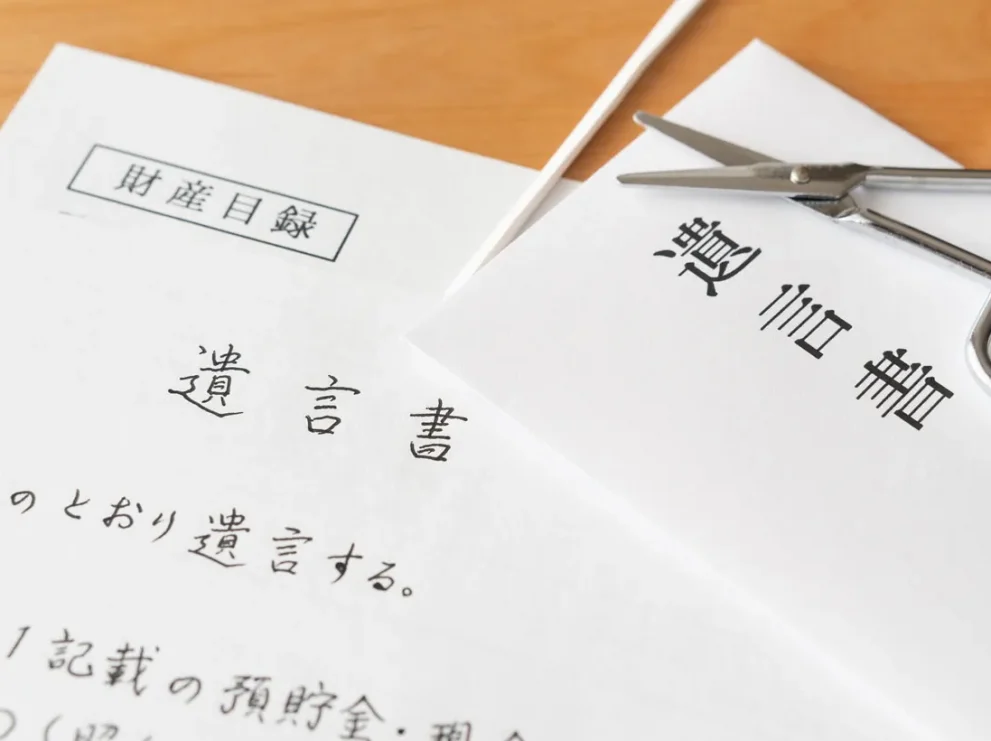 財産目録
遺言書
のとおり遺言する。
1記載の預貯金・現金
遺言書